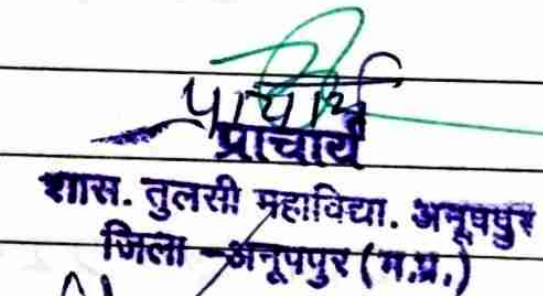 प्राचार्य
प्राचार्य
शास. तुलसी महाविद्या. अनूपपुर
जिला -अनूपपुर (म.प्र.)